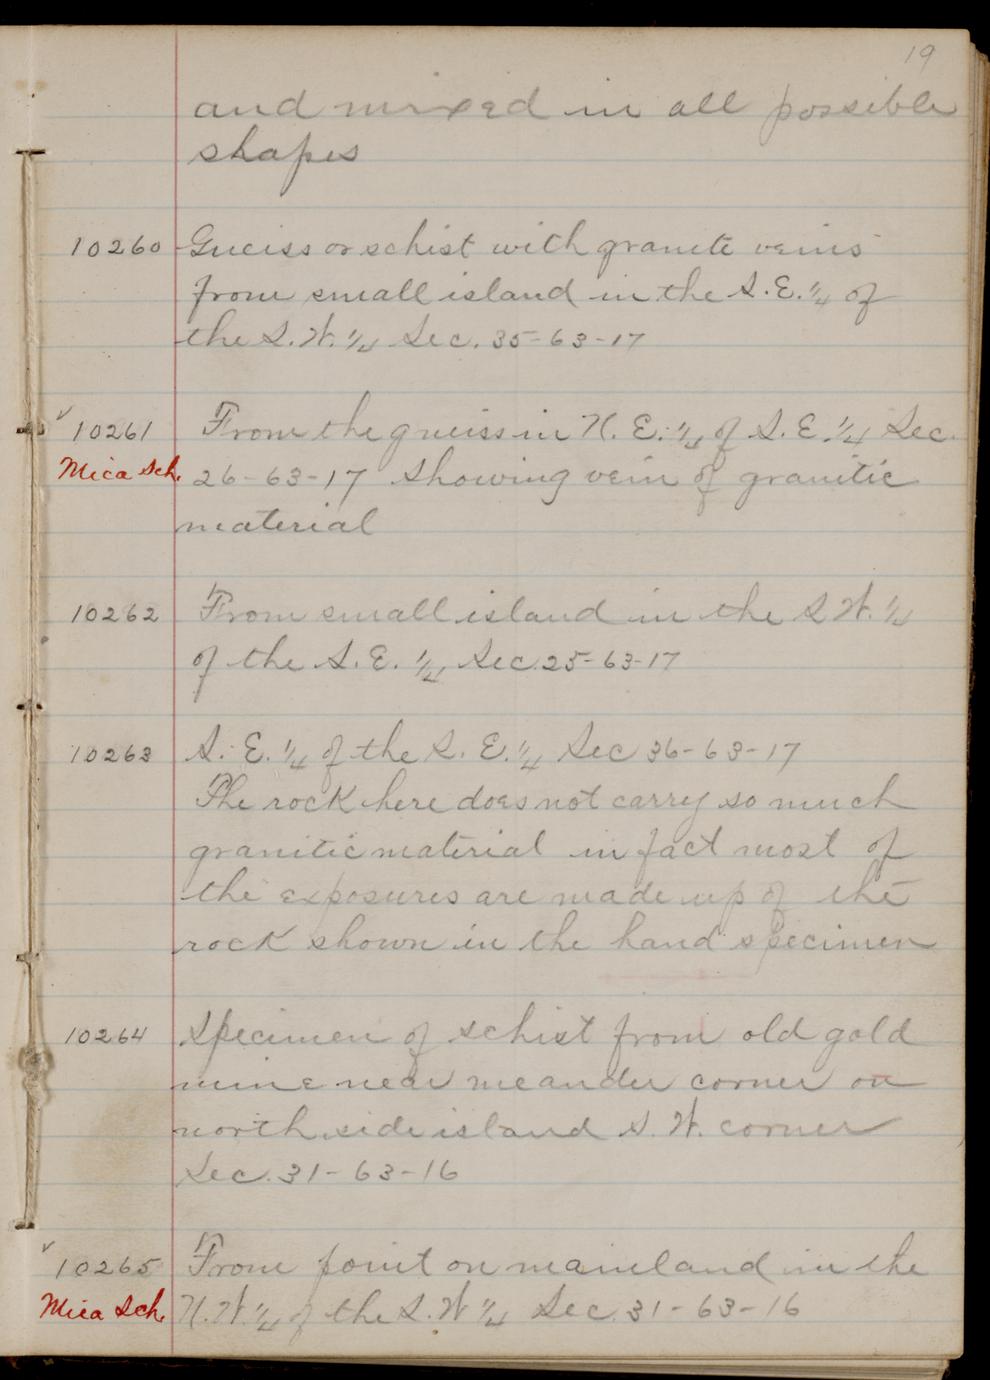 19
and mixed in all possible
shapes
10260 Gneiss or schist with granite veins
from small island in the S.E. 1/4 of
the S.W. 1/4 Sec. 35-63-17
✓ 10261 From the gneiss in N.E. 1/4 of S.E. 1/4 Sec.
Mica Sch. 26-63-17 showing vein of granitic
material
10262 From small island in the S.W. 1/4
of the S.E. 1/4 Sec. 25-63-17
10263 S.E. 1/4 of the S.E. 1/4 Sec 36-63-17
The rock here does not carry so much
granitic material in fact most of
the exposures are made up of the
rock shown in the hand specimen
10264 Specimen of schist from old gold
mine near meander corner on
north side island S.W. corner
Sec. 31-63-16
✓ 10265 From point on mainland in the
Mica Sch. N.W. 1/4 of the S.W 1/4 Sec. 31-63-16